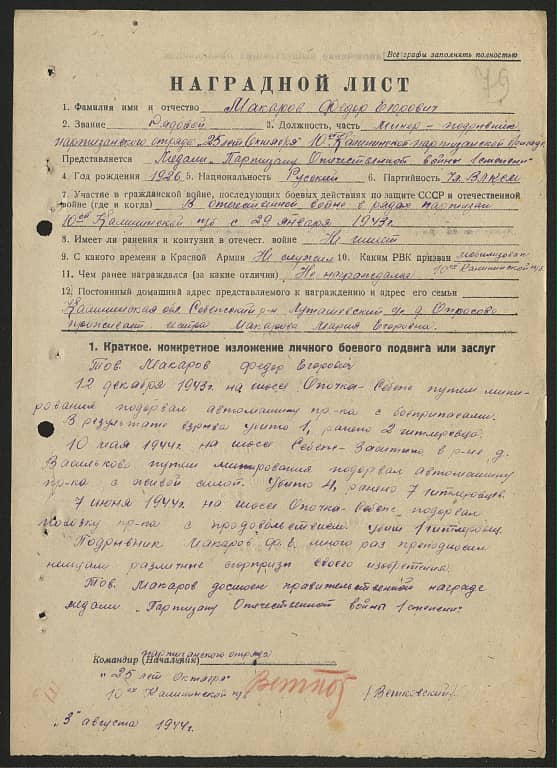 Все графы заполнять полностью
79
НАГРАДНОЙ ЛИСТ
1. Фамилия имя и отчество Макаров Федор Егорович
2. Звание Рядовой 3. Должность, часть минер - подрывник
партизанского отряда "25 лет Октября" 10ой Калининской партизанской бригады
Представляется к Медали "Партизану Отечественной войны 1 степени"
4. Год рождения 1926 5. Национальность Русский 6. Партийность Чл. ВЛКСМ
7. Участие в гражданской войне, последующих боевых действиях по защите СССР и отечественной
войне (где и когда) В отечественной войне в рядах партизан
10ой Калининской п/б с 29 января 1943г.
8. Имеет ли ранения и контузии в отечест. войне Не имеет
9. С какого времени в Красной Армии Не служил 10. Каким РВК призван мобилизован
10ой Калининской п/б
11. Чем ранее награждался (за какие отличия) Не награждался
12. Постоянный домашний адрес представляемого к награждению и адрес его семьи
Калининская обл. Себежский р-н д.
проживает сестра Макарова Мария Егоровна.
1. Краткое, конкретное изложение личного боевого подвига или заслуг
Тов. Макаров Федор Егорович
12 декабря 1943г. на шоссе Опочка-Себеж путем мини-
рования подорвал автомашину пр-ка с боеприпасами.
В результате взрыва убито 1, ранено 2 гитлеровца.
10 мая 1944г. на шоссе Себеж-Заситино в р-не д.
Васильково путем минирования подорвал автомашину
пр-ка с живой силой. Убито 4, ранено 7 гитлеровцев.
7 июня 1944г. на шоссе Опочка-Себеж подорвал
повозку пр-ка с продовольствием убит 1 гитлеровец.
Подрывник Макаров Ф.Е. много раз преподносил
немцам различные сюрпризы своего изобретения.
Тов. Макаров достоен правительственной награде
медали "Партизану Отечественной войны 1 степени"
партизанского отряда
Командир (Начальник)
"25 лет Октября"
10ой Калининской п/б (Ветковский)
"3" августа 1944г.